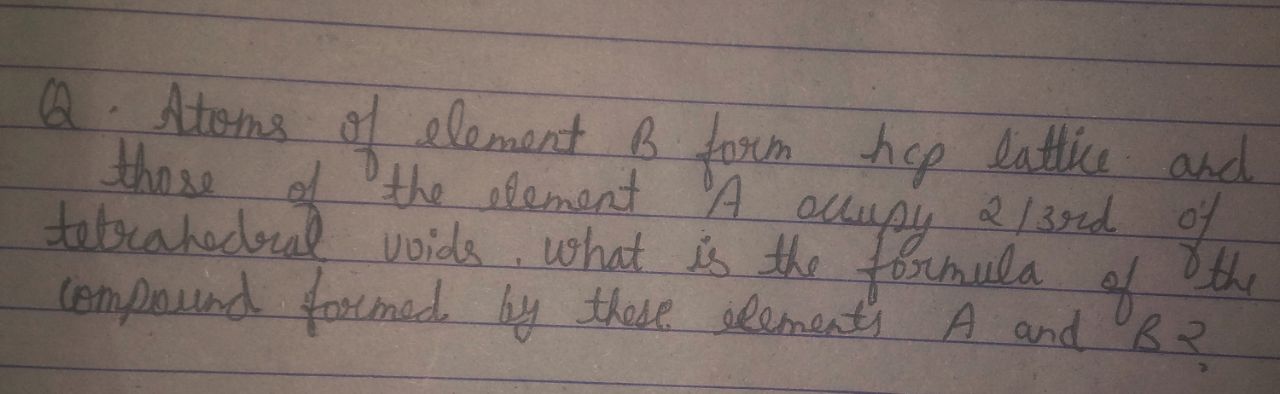 Q. Atoms of element B form hcp lattice and
those of the element A occupy 2/3rd of
tetrahedral voids. what is the formula of the
compound formed by these elements A and B?